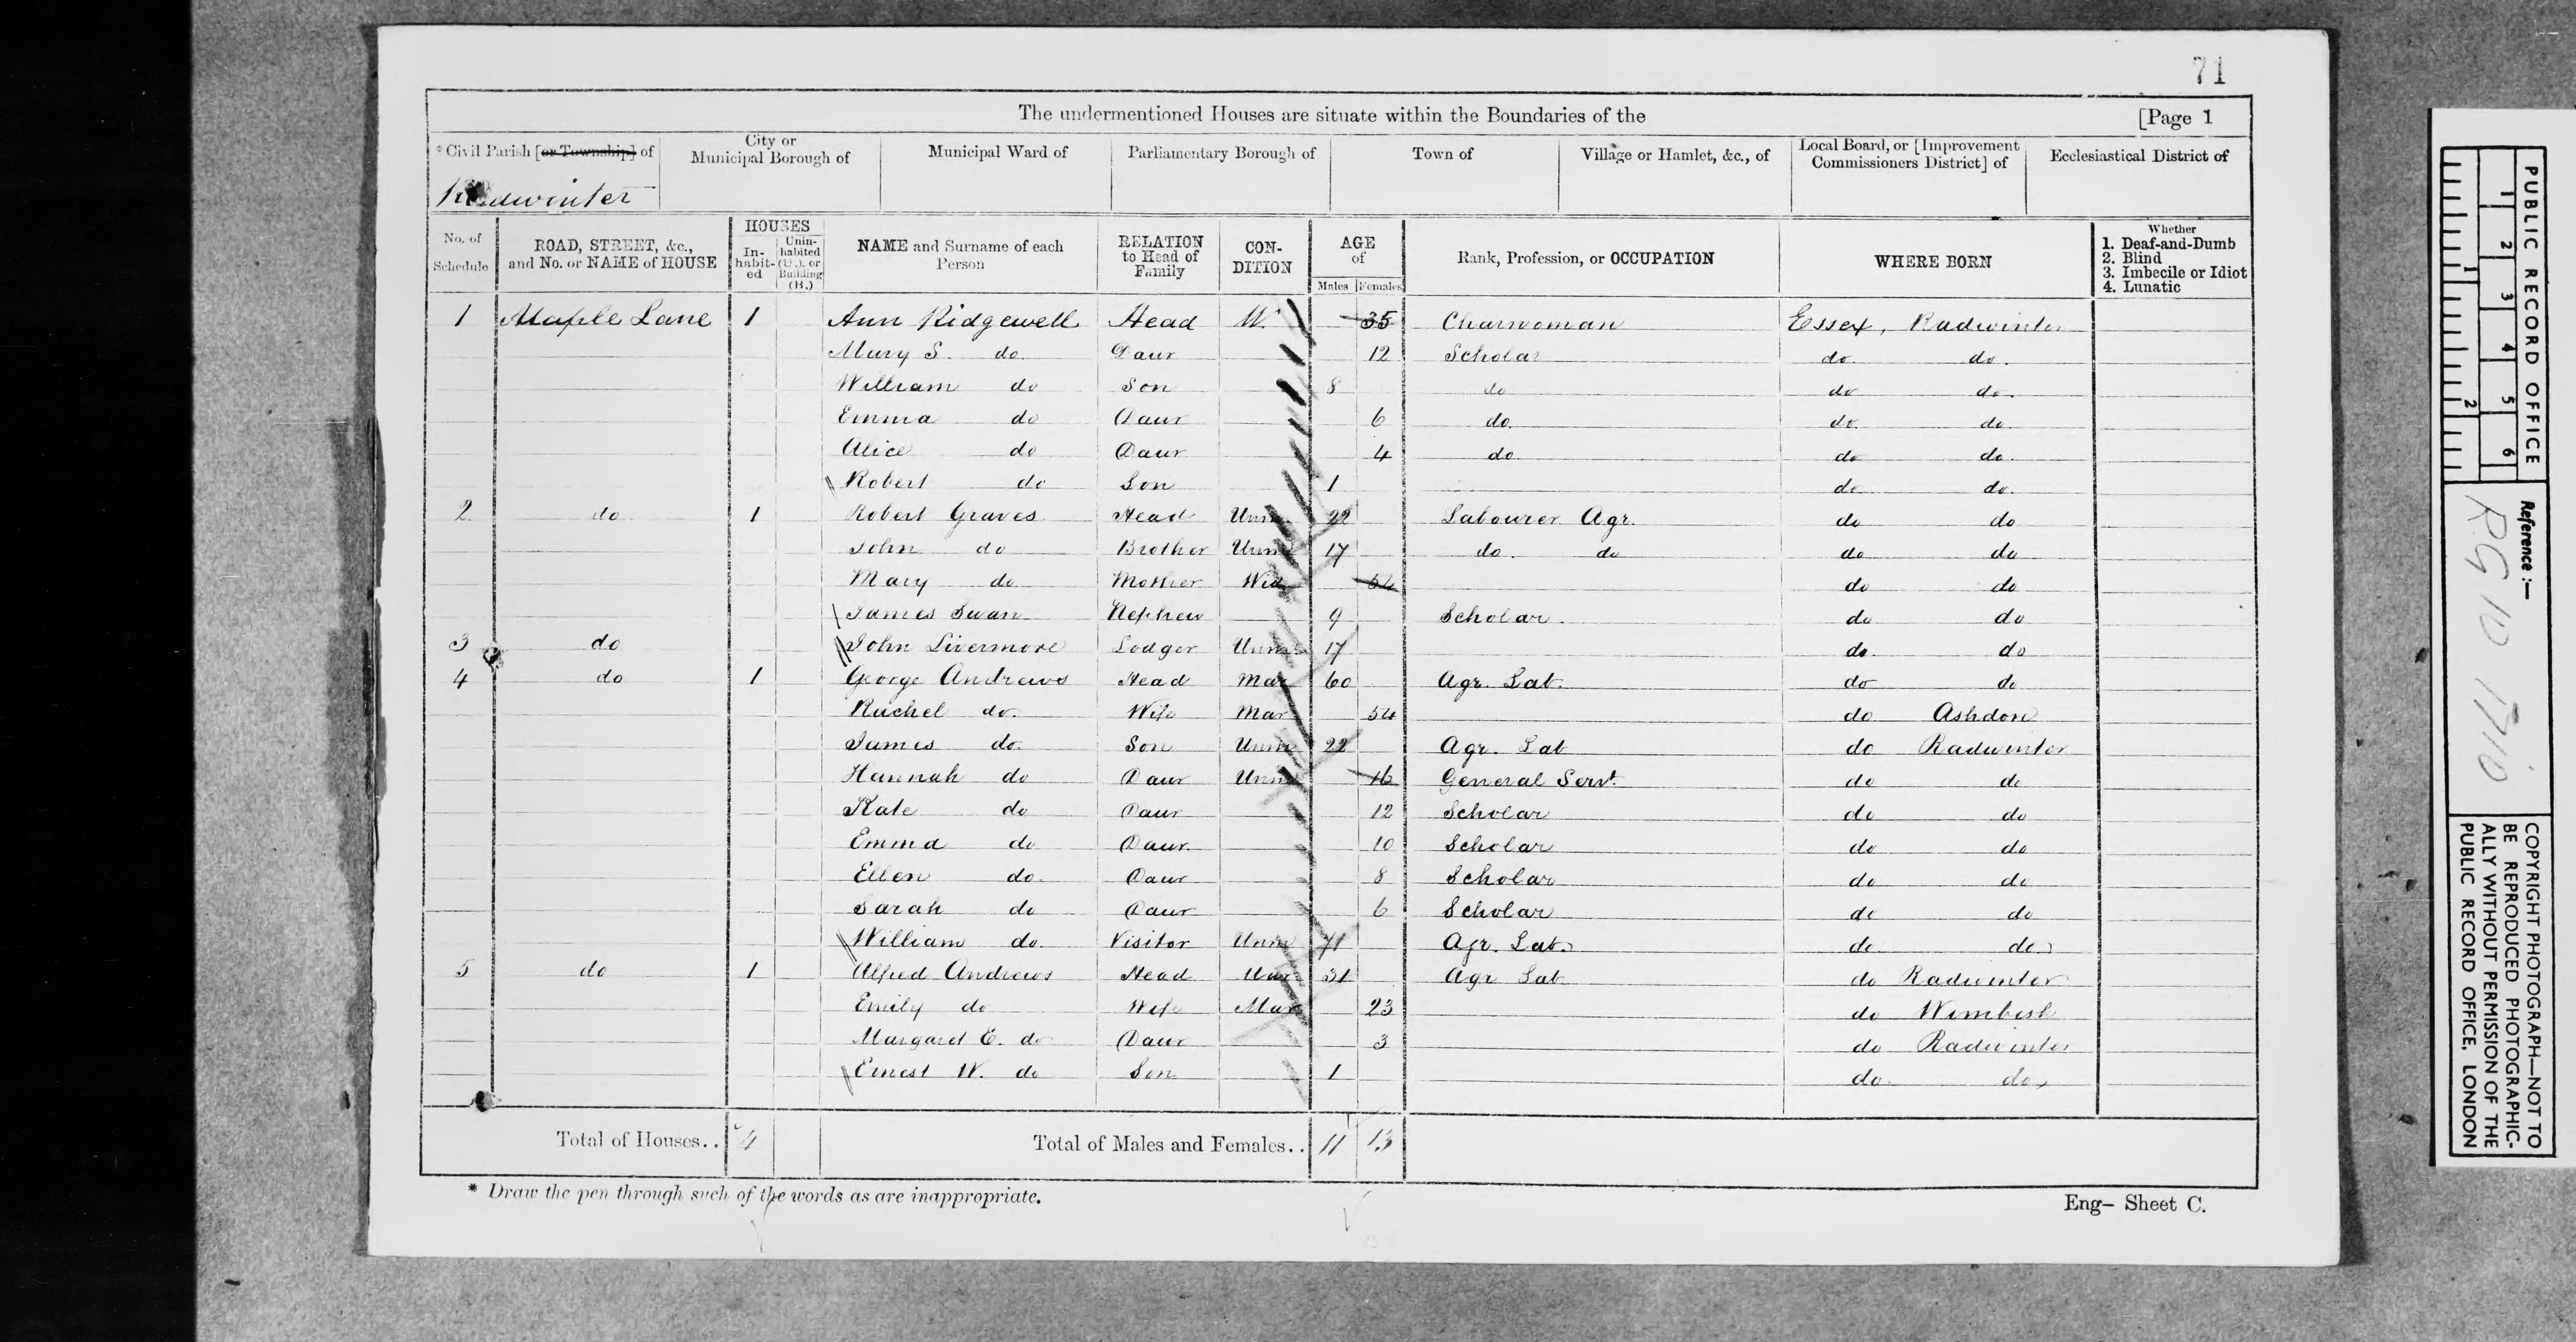 71
The undermentioned Houses are situate within the Boundaries of the [Page 1
* Civil Parish [or Township] of City or Municipal Borough of Municipal Ward of Parliamentary Borough of Town of Village or Hamlet, &c., of Local Board, or [Improvement Commissioners District] of Ecclesiastical District of
Radwinter
No. of Schedule ROAD, STREET, &c., and No. or NAME of HOUSE HOUSES In-habit-ed Unin-habited (U.), or Building (B.) NAME and Surname of each Person RELATION to Head of Family CON-DITION AGE of Males Females Rank, Profession, or OCCUPATION WHERE BORN Whether 1. Deaf-and-Dumb 2. Blind 3. Imbecile or Idiot 4. Lunatic
1 Maple Lane 1 Ann Ridgewell Head W. 35 Charwoman Essex, Radwinter
Mary S. do. Daur 12 Scholar do. do.
William do Son 8 do do do.
Emma do Daur 6 do. do. do.
Alice do Daur 4 do. do do.
Robert do Son 1 do. do.
2 do 1 Robert Graves Head Unm 22 Labourer Agr. do do
John do Brother Unm 17 do. do do do
Mary do Mother Wid do do
James Swan Nephew 9 Scholar. do do
3 do John Livermore Lodger Unm 17 do. do
4 do 1 George Andrews Head Mar 60 Agr. Lab. do do
Rachel do. Wife Mar 54 do Ashdon
James do. Son Unm 22 Agr. Lab do Radwinter
Hannah do Daur Unm 16 General Servt. do do
Kate do Daur 12 Scholar do do
Emma do Daur. 10 Scholar do do
Ellen do. Daur 8 Scholar do do
Sarah do Daur 6 Scholar do do
William do. Visitor Unm 71 Agr. Lab. do do
5 do 1 Alfred Andrews Head Mar 31 Agr Lab do Radwinter
Emily do Wife Mar 23 do Wimbish
Margaret E. do Daur 3 do Radwinter
Ernest W. do Son 1 do. do,
Total of Houses.. 4 Total of Males and Females.. 11 13
* Draw the pen through such of the words as are inappropriate.
Eng- Sheet C.
PUBLIC RECORD OFFICE
1 2 3 4 5 6
1 2
Reference :—
RG 10 1710
COPYRIGHT PHOTOGRAPH—NOT TO
BE REPRODUCED PHOTOGRAPHIC-
ALLY WITHOUT PERMISSION OF THE
PUBLIC RECORD OFFICE, LONDON